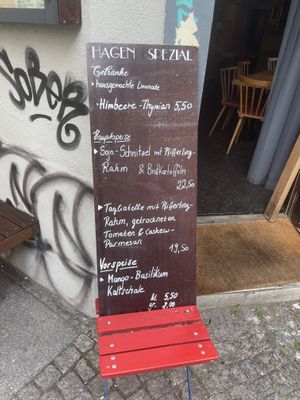 HAGEN SPEZIAL
Getränke
▸ hausgemachte Limonade
- Himbeere-Thymian 5,50
Hauptspeise
▸ Soja-Schnitzel mit Pfifferling-
Rahm & Bratkartoffeln
22,50
▸ Tagliatelle mit Pfifferling-
Rahm, getrockneten
Tomaten & Cashew-
Parmesan
19,50
Vorspeise
▸ Mango-Basilikum
Kaltschale kl. 5,50
gr. 8,00
SOBER